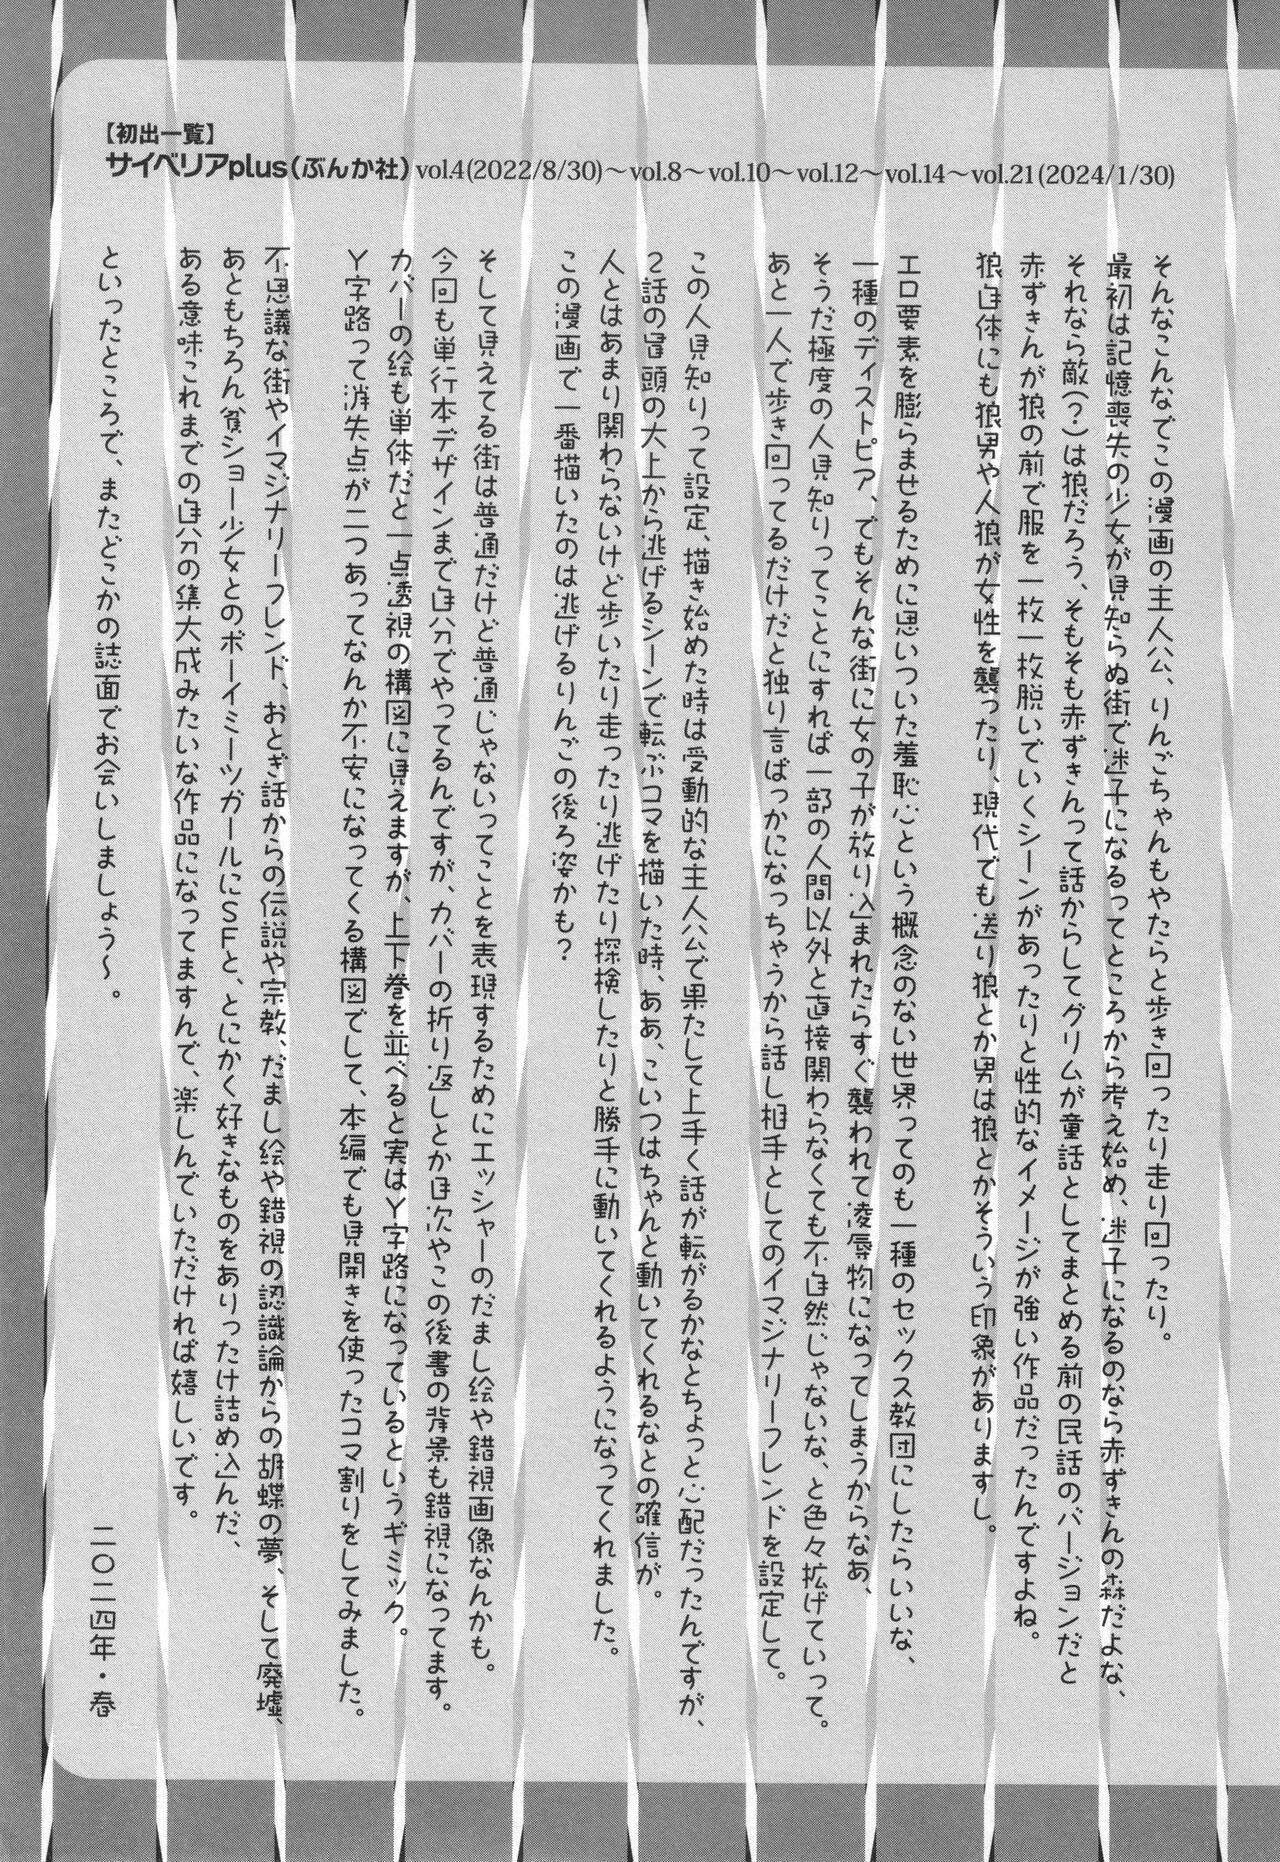 【初出一覧】
サイベリアplus（ぶんか社）vol.4(2022/8/30)～vol.8～vol.10～vol.12～vol.14～vol.21(2024/1/30)
そんなこんなでこの漫画の主人公、りんごちゃんもやたらと歩き回ったり走り回ったり。
最初は記憶喪失の少女が見知らぬ街で迷子になるってところから考え始め、迷子になるのなら赤ずきんの森だよな、
それなら敵（？）は狼だろう、そもそも赤ずきんって話からしてグリムが童話としてまとめる前の民話のバージョンだと
赤ずきんが狼の前で服を一枚一枚脱いでいくシーンがあったりと性的なイメージが強い作品だったんですよね。
狼自体にも狼男や人狼が女性を襲ったり、現代でも送り狼とか男は狼とかそういう印象がありますし。
エロ要素を膨らませるために思いついた羞恥心という概念のない世界ってのも一種のセックス教団にしたらいいな、
一種のディストピア、でもそんな街に女の子が放り込まれたらすぐ襲われて凌辱物になってしまうからなあ、
そうだ極度の人見知りってことにすれば一部の人間以外と直接関わらなくても不自然じゃないな、と色々拡げていって。
あと一人で歩き回ってるだけだと独り言ばっかになっちゃうから話し相手としてのイマジナリーフレンドを設定して。
この人見知りって設定、描き始めた時は受動的な主人公で果たして上手く話が転がるかなとちょっと心配だったんですが、
２話の冒頭の大上から逃げるシーンで転ぶコマを描いた時、ああ、こいつはちゃんと動いてくれるなとの確信が。
人とはあまり関わらないけど歩いたり走ったり逃げたり探検したりと勝手に動いてくれるようになってくれました。
この漫画で一番描いたのは逃げるりんごの後ろ姿かも？
そして見えてる街は普通だけど普通じゃないってことを表現するためにエッシャーのだまし絵や錯視画像なんかも。
今回も単行本デザインまで自分でやってるんですが、カバーの折り返しとか目次やこの後書の背景も錯視になってます。
カバーの絵も単体だと一点透視の構図に見えますが、上下巻を並べると実はＹ字路になっているというギミック。
Ｙ字路って消失点が二つあってなんか不安になってくる構図でして、本編でも見開きを使ったコマ割りをしてみました。
不思議な街やイマジナリーフレンド、おとぎ話からの伝説や宗教、だまし絵や錯視の認識論からの胡蝶の夢、そして廃墟、
あともちろん貧ショー少女とのボーイミーツガールにＳＦと、とにかく好きなものをありったけ詰め込んだ、
ある意味これまでの自分の集大成みたいな作品になってますんで、楽しんでいただければ嬉しいです。
といったところで、またどこかの誌面でお会いしましょう～。
二〇二四年・春